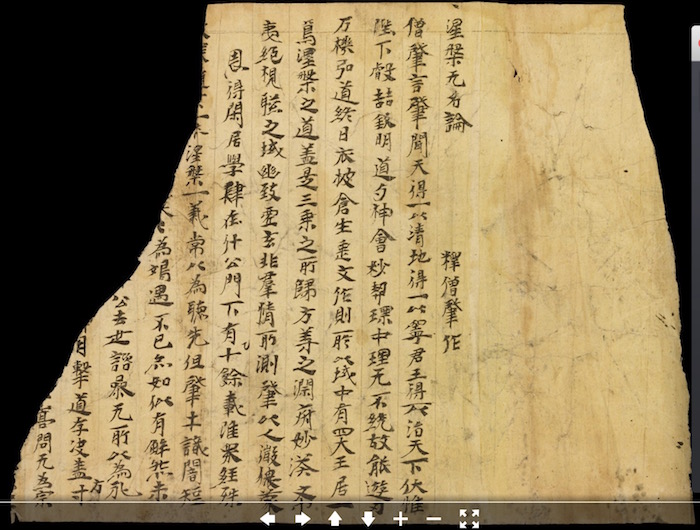 涅槃无名論 釋僧肇作
僧肇言肇聞天得一以清地得一以寧君王得一以治天下伏惟
陛下叡喆欽明道与神會妙契環中理无不統故能遊刃
万機弘道終日衣被倉生垂文作則所以域中有四大王居一
焉涅槃之道盖是三乘之所歸方等之淵府妙漭希
夷絕視聽之域幽致虛玄非羣情所測肇以人微猥蒙
恩得閑居學肆在什公門下十有餘載雖衆經殊
涅槃一義常以為聽先但肇才識闇短
為竭愚不已亦如似有解然未
公去世諮參无所以為永
目擊道存決盡方寸